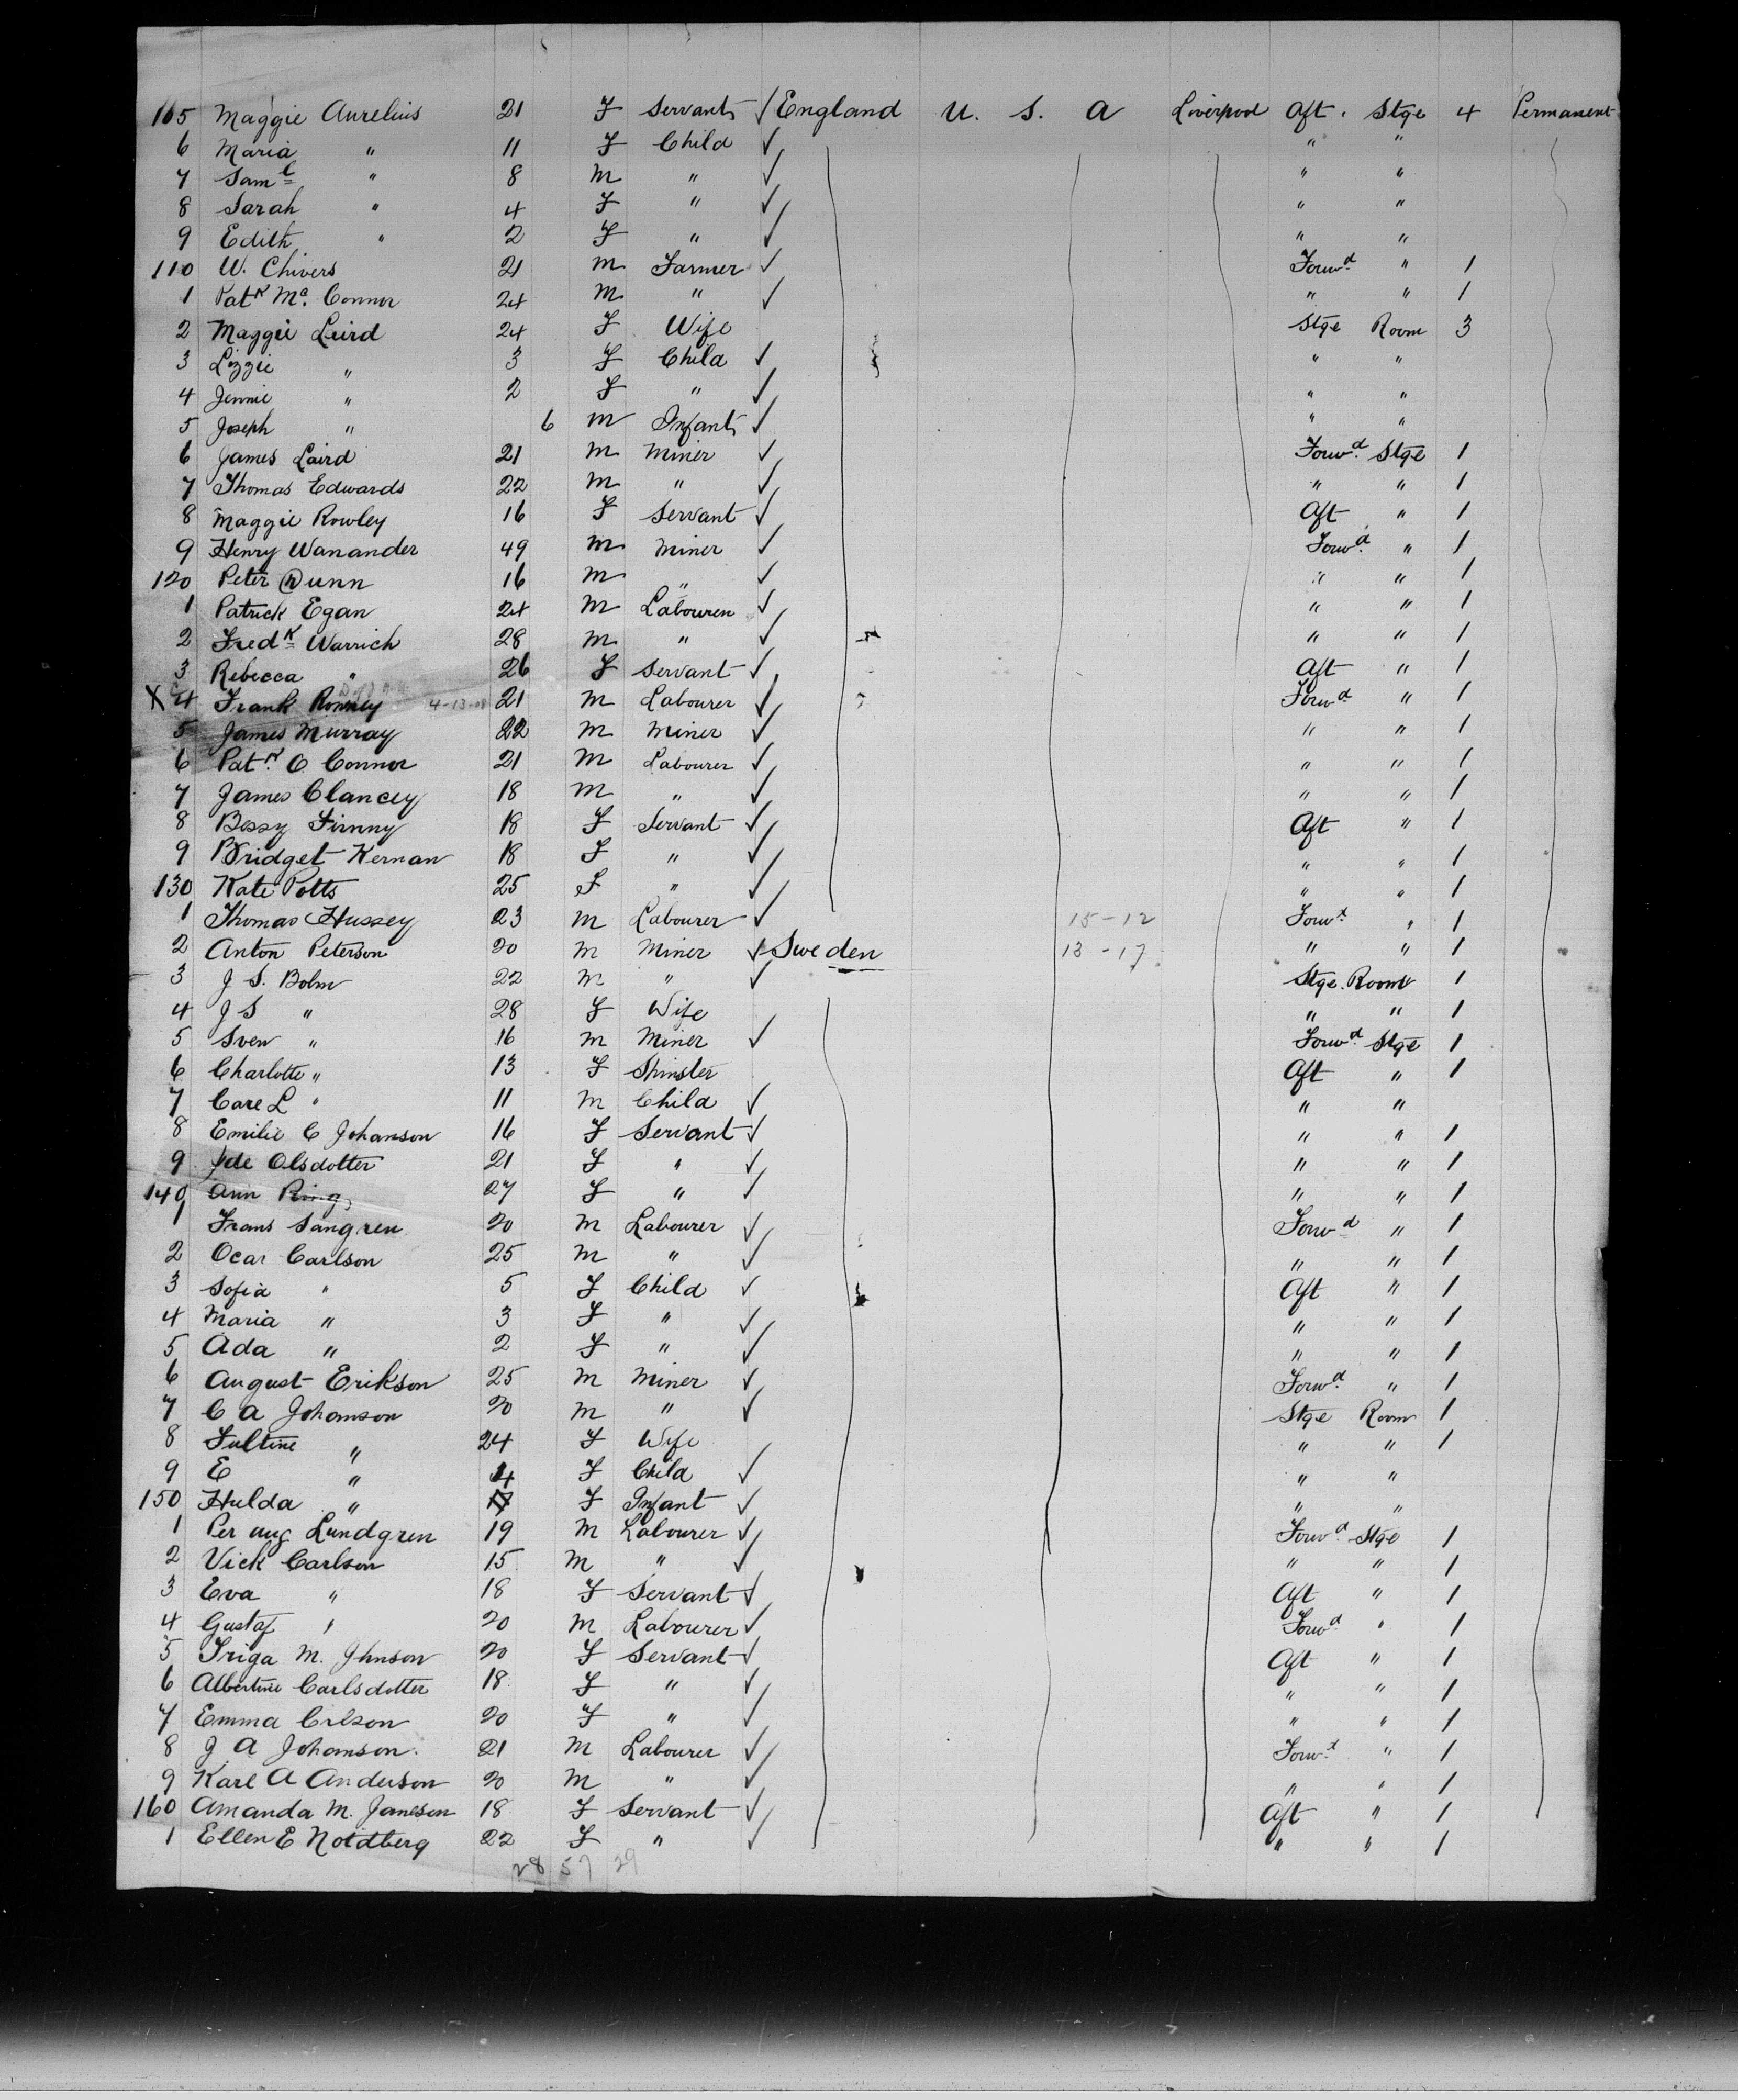 105 Maggie Aurelius 21 F Servant ✓ England U. S. A Liverpool Aft. Stge 4 Permanent
6 Maria " 11 F Child ✓ " "
7 Saml " 8 M " ✓ " "
8 Sarah " 4 F " ✓ " "
9 Edith " 2 F " ✓ " "
110 W. Chivers 21 M Farmer ✓ Forwd " 1
1 Patk Mc. Connor 24 M " ✓ " " 1
2 Maggie Leird 24 F Wife Stge Room 3
3 Lizzie " 3 F Child ✓ " "
4 Jennie " 2 F " ✓ " "
5 Joseph " 6 M Infant ✓ " "
6 James Laird 21 M Miner ✓ Forwd. Stge 1
7 Thomas Edwards 22 M " ✓ " " 1
8 Maggie Rowley 16 F Servant ✓ Aft " 1
9 Henry Wanander 49 M Miner ✓ Forwd. " 1
120 Peter Dunn 16 M " ✓ " " 1
1 Patrick Egan 24 M Labourer ✓ " " 1
2 Fredk Warrich 28 M " ✓ " " 1
3 Rebecca " 26 F Servant ✓ Aft " 1
X 4 Frank 4-13-08 21 M Labourer ✓ Forwd " 1
5 James Murray 22 M Miner ✓ " " 1
6 Patk. O Connor 21 M Labourer ✓ " " 1
7 James Clancey 18 M " ✓ " " 1
8 Bessy Finny 18 F Servant ✓ Aft " 1
9 Bridget Kernan 18 F " ✓ " " 1
130 Kate Potts 25 F " ✓ " " 1
1 Thomas Hussey 23 M Labourer ✓ 15-12 Forwd. " 1
2 Anton Peterson 20 M Miner ✓ Sweden 13-17 " " 1
3 J S. Bolm 22 M " ✓ Stge. Room 1
4 J S " 28 F Wife " " 1
5 Sven " 16 M Miner ✓ Forwd. Stge 1
6 Charlotte " 13 F Spinster Aft " 1
7 Care L " 11 M Child ✓ " "
8 Emilie C Johanson 16 F Servant ✓ " " 1
9 Olsdotter 21 F " ✓ " " 1
140 Ann Ring 27 F " ✓ " " 1
1 Frans Sangren 20 M Labourer ✓ Forwd " 1
2 Ocar Carlson 25 M " ✓ " " 1
3 Sofia " 5 F Child ✓ Aft " 1
4 Maria " 3 F " ✓ " " 1
5 Ada " 2 F " ✓ " " 1
6 August Erikson 25 M Miner ✓ Forwd. " 1
7 C A Johanson 20 M " ✓ Stge Room 1
8 " 24 F Wife " " 1
9 E " 4 F Child ✓ " "
150 Hulda " F Infant ✓ " "
1 Per aug Lundgren 19 M Labourer ✓ Forwd. Stge 1
2 Vick Carlson 15 M " ✓ " " 1
3 Eva " 18 F Servant ✓ Aft " 1
4 Gustaf " 20 M Labourer ✓ Forwd. " 1
5 Friga M. Jhnson 20 F Servant ✓ Aft " 1
6 Albertine Carlsdotter 18 F " ✓ " " 1
7 Emma 20 F " ✓ " " 1
8 J A Johanson. 21 M Labourer ✓ Forwd. " 1
9 Karl A Anderson 20 M " ✓ " " 1
160 Amanda M. Janeson 18 F Servant ✓ Aft " 1
1 Ellen E Noidberg 22 F " ✓ " " 1
28 57 29